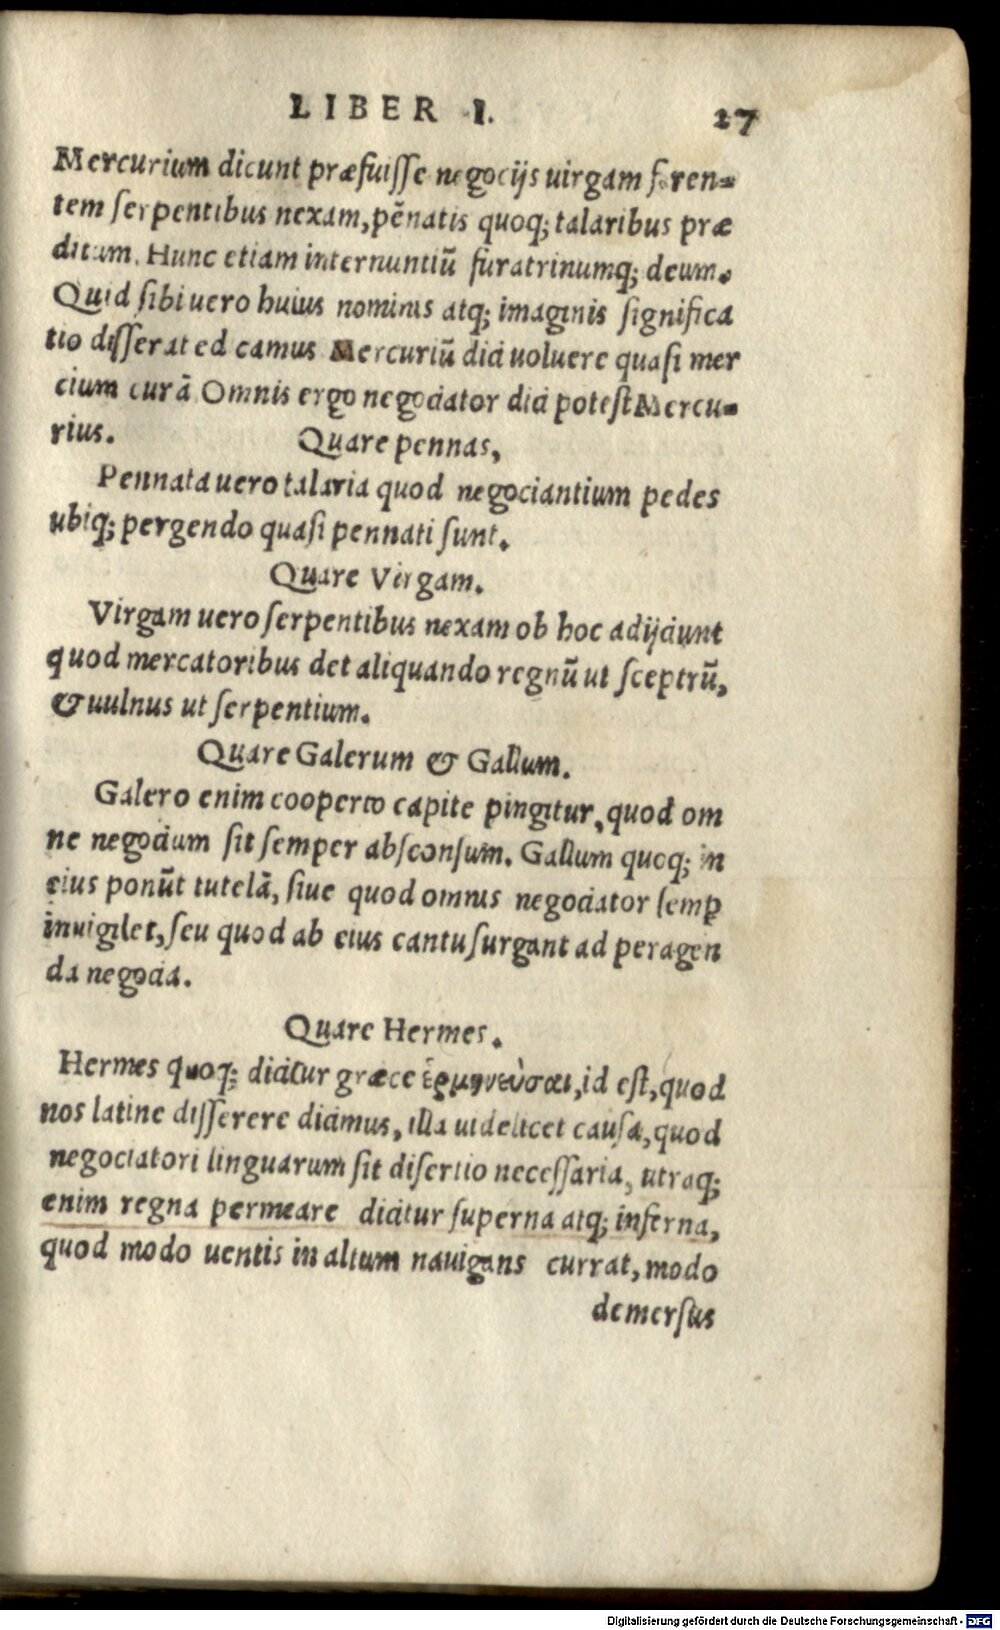 LIBER I. 27
Mercurium dicunt præfuiſſe negocijs uirgam feren=
tem ſerpentibus nexam, pẽnatis quoq; talaribus præ
ditum. Hunc etiam internuntiũ furatrinumq; deum.
Quid ſibi uero huius nominis atq; imaginis ſignifica
tio diſſerat edicamus Mercuriũ dici uoluere quaſi mer
cium curã Omnis ergo negociator dici poteſt Mercu=
rius. Quare pennas,
Pennata uero talaria quod negociantium pedes
ubiq; pergendo quaſi pennati ſunt.
Quare Virgam.
Virgam uero ſerpentibus nexam ob hoc adijciunt
quod mercatoribus det aliquando regnũ ut ſceptrũ,
& uulnus ut ſerpentium.
Quare Galerum & Gallum.
Galero enim cooperto capite pingitur, quod om
ne negocium ſit ſemper abſconſum. Gallum quoq; in
eius ponũt tutelã, ſiue quod omnis negociator ſemꝑ
inuigilet, ſeu quod ab eius cantu ſurgant ad peragen
da negocia.
Quare Hermes.
Hermes quoq; dicitur græce ἑρμηνεύσαι, id eſt, quod
nos latine diſſerere dicimus, illa uidelicet cauſa, quod
negociatori linguarum ſit diſertio neceſſaria, utraq;
enim regna permeare dicitur ſuperna atq; inferna,
quod modo uentis in altum nauigans currat, modo
demerſus
Digitalisierung gefördert durch die Deutsche Forschungsgemeinschaft - DFG